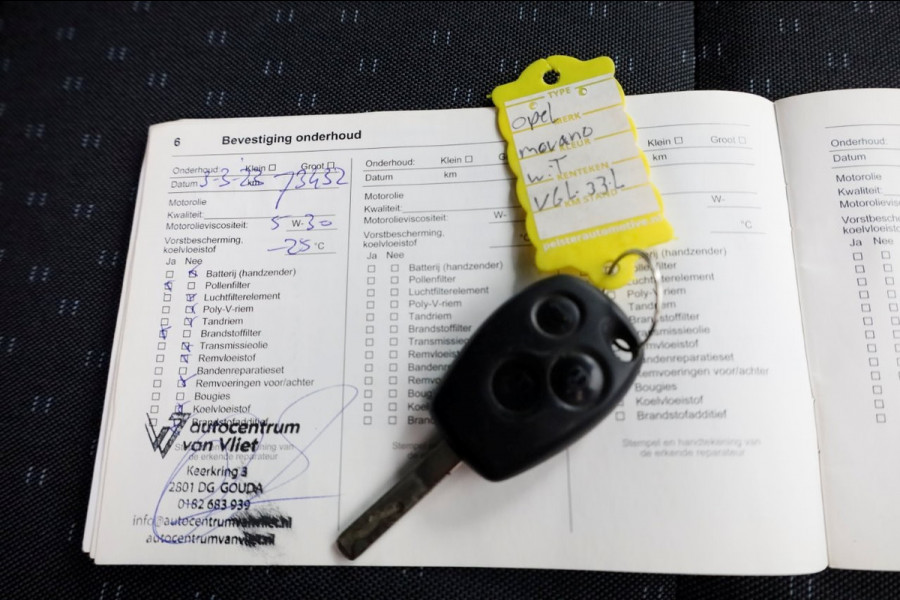 6 Bevestiging onderhoud
Onderhoud: Klein Groot
Datum 5-3- km 73452
Motorolie
Kwaliteit:
Motorolieviscositeit: 5 W-30
Vorstbescherming,
koelvloeistof -25 °C
Ja Nee
Batterij (handzender)
Pollenfilter
Luchtfilterelement
Poly-V-riem
Tandriem
Brandstoffilter
Transmissieolie
Remvloeistof
Bandenreparatieset
Remvoeringen voor/achter
Bougies
Koelvloeistof
Brandstofadditief
autocentrum
van Vliet
Keerkring 3
2801 DG GOUDA
0182 683 939
info@autocentrumvanvliet.nl
autocentrumvanvliet.nl
Onderhoud: Klein
Datum km
Motorolie
Kwaliteit:
Motorolieviscositeit: W-
Vorstbescherming,
koelvloeistof
Ja Nee
Batterij (handzender)
Pollenfilter
Luchtfilterelement
Poly-V-riem
Tandriem
Brandstoffilter
Transmissieolie
Remvloeistof
TYPE
Opel
MERK
movano
KLEUR
W.T
KENTEKEN
VGL-33-L
KM STAND
pelsterautomotive.nl
Klein Groot
km
W-
°C
Poly-V-riem
Bandenreparatieset
Remvoeringen voor/achter
Bougies
Koelvloeistof
Brandstofadditief
Stempel en handtekening van
de erkende reparateur
Onderhoud:
Datum
Motorolie
Kwaliteit:
Ja Nee